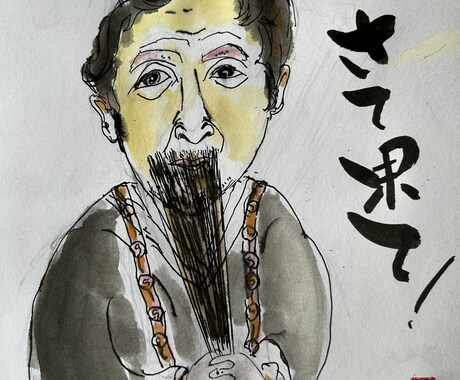 さて果て!